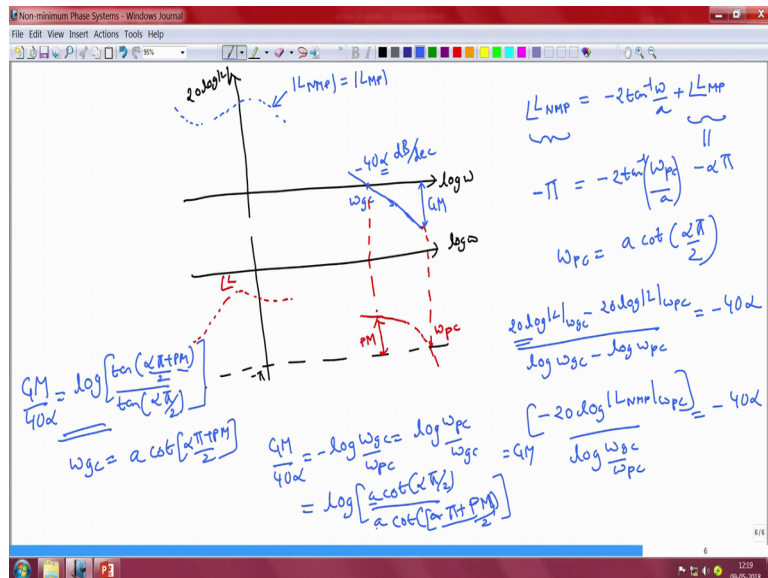 Non-minimum Phase Systems - Windows Journal
File Edit View Insert Actions Tools Help
95%
B I
20log|L|
|L_NMP| = |L_MP|
-40α dB/dec
logω
ωgc
GM
logω
∠L
PM
ωpc
-π
∠L_NMP = -2tan⁻¹ ω/a + ∠L_MP
||
-π = -2tan⁻¹(ωpc/a) - απ
ωpc = a cot(απ/2)
(20log|L|ωgc - 20log|L|ωpc)/(log ωgc - log ωpc) = -40α
[-20log|L_NMP|ωpc]/(log ωgc/ωpc) = -40α
= GM
GM/40α = log[tan((απ+PM)/2)/tan(απ/2)]
ωgc = a cot[(απ+PM)/2]
GM/40α = -log ωgc/ωpc = log ωpc/ωgc
= log[a cot(απ/2)/a cot([απ+PM]/2)]
6/6
6
12:19
09-05-2018